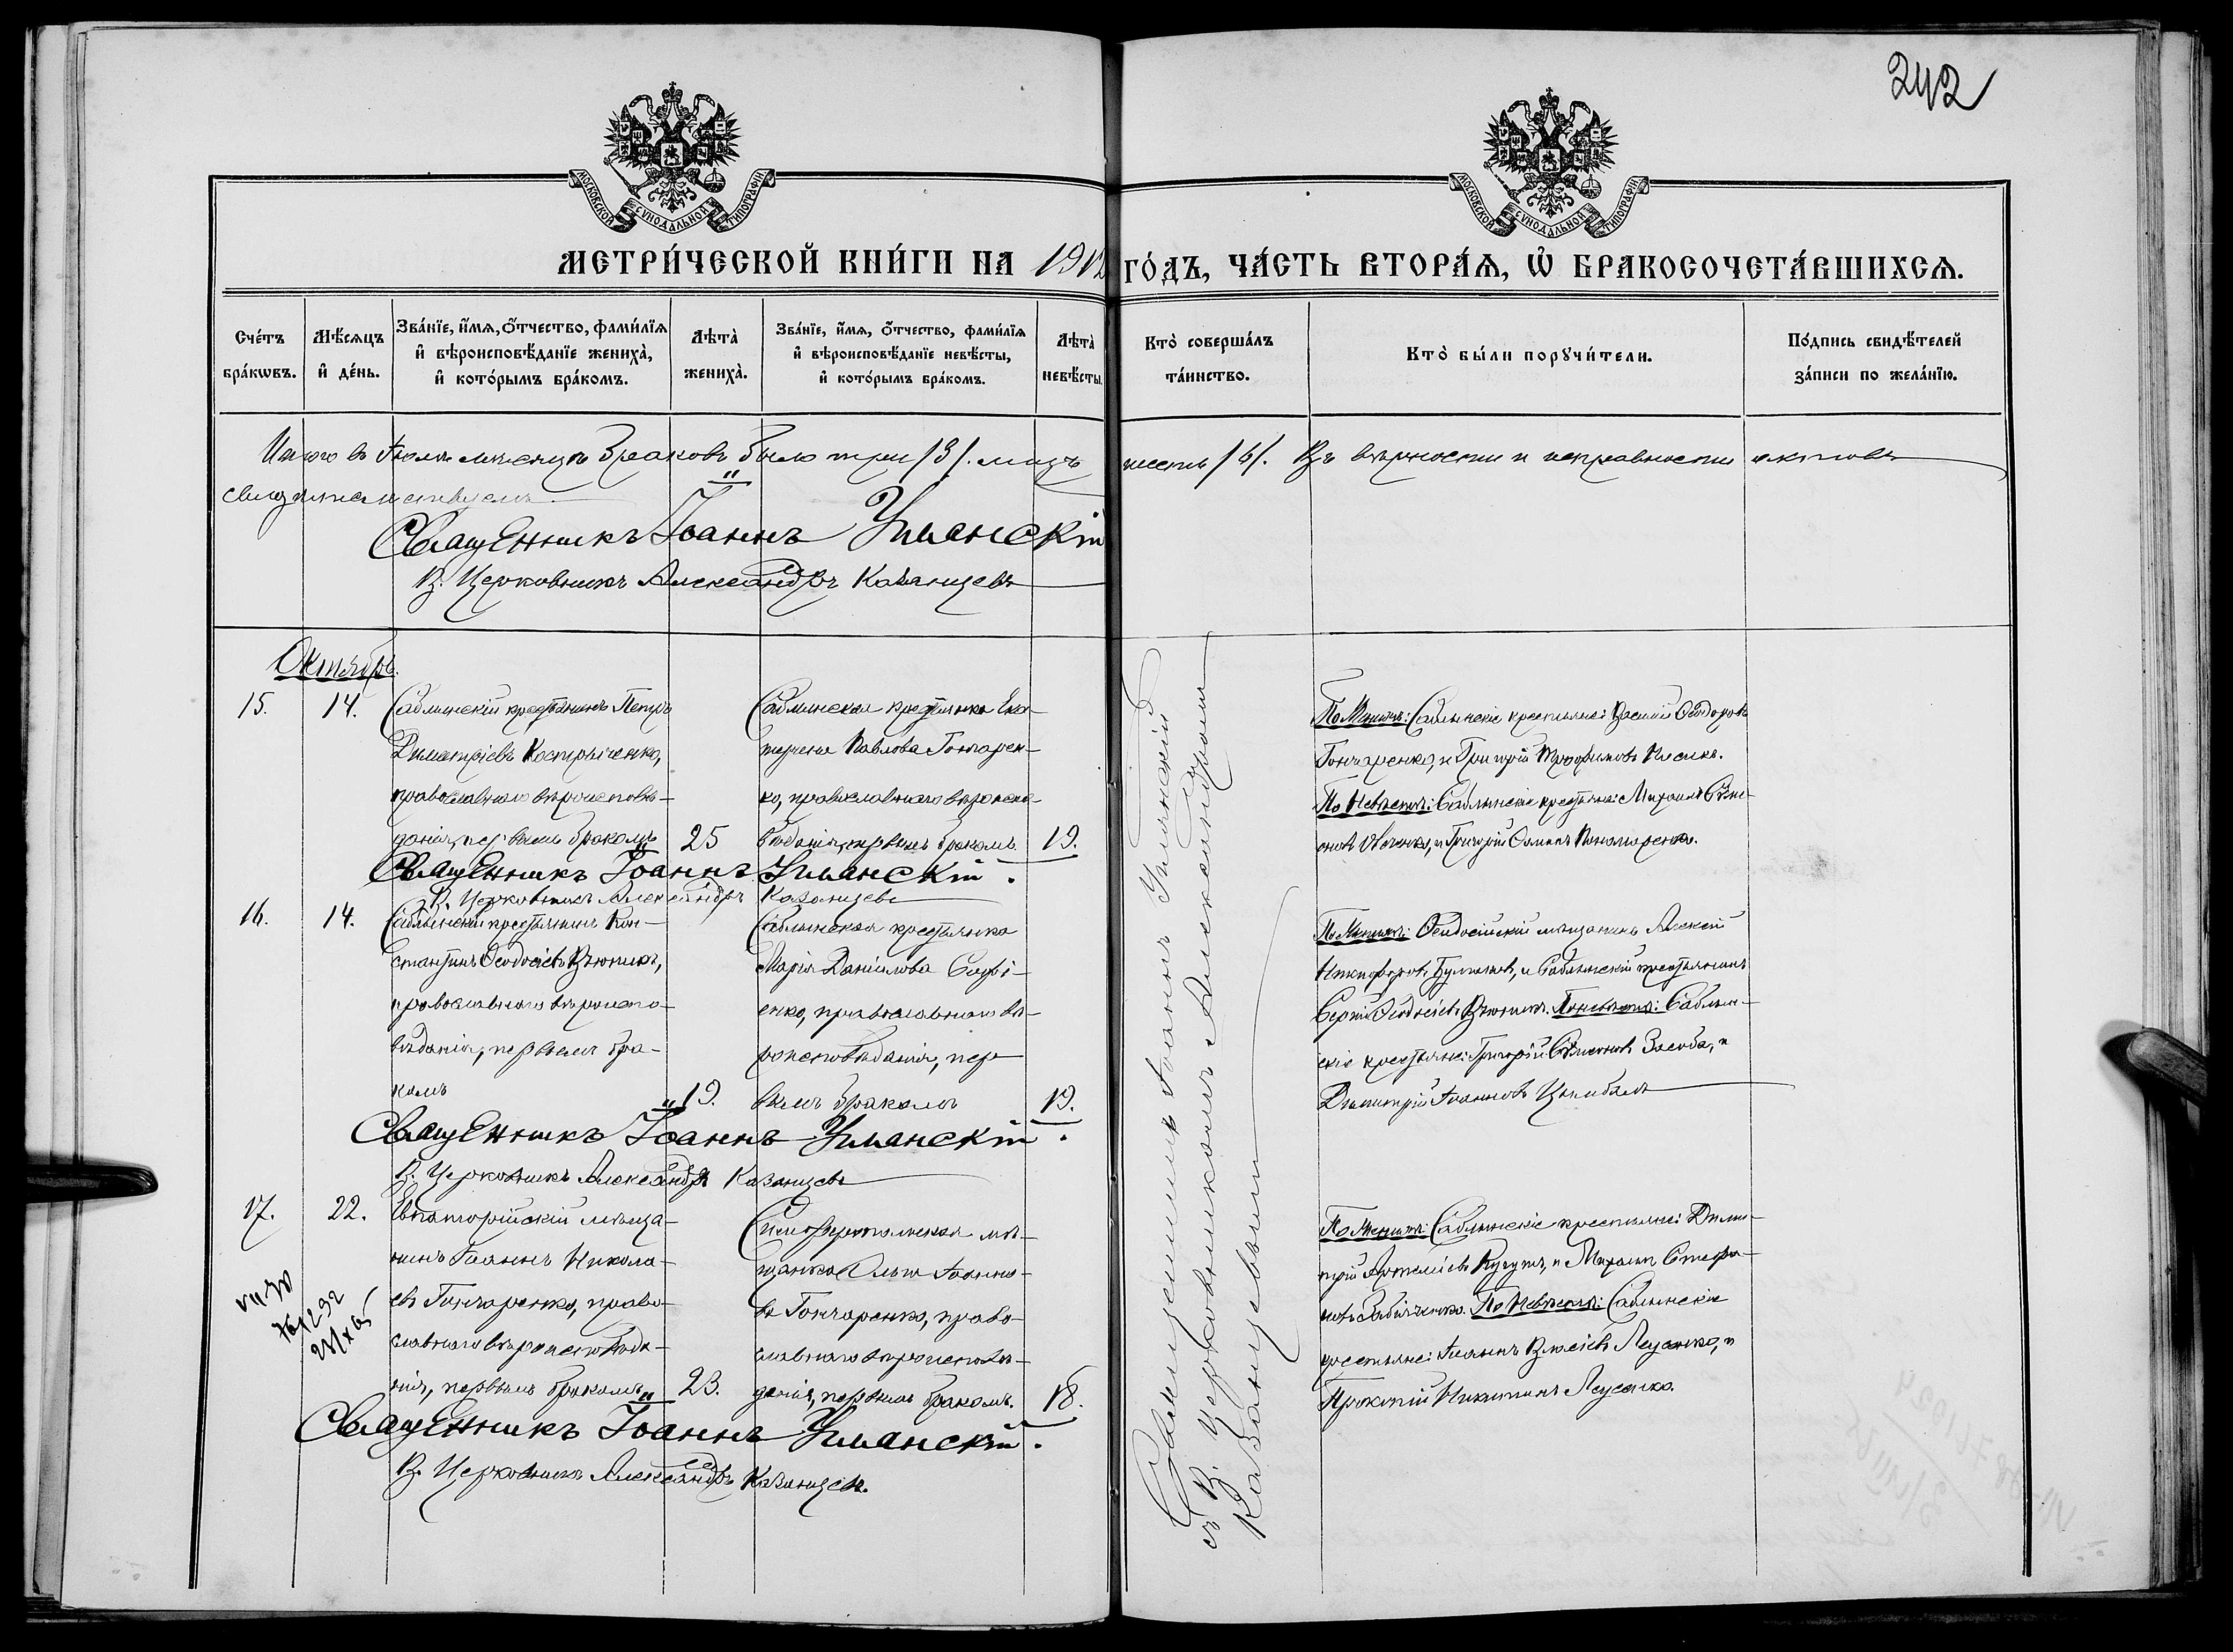 242
МОСКОВСКОЙ СУНОДАЛЬНОЙ ТИПОГРАФІИ
МОСКОВСКОЙ СУНОДАЛЬНОЙ ТИПОГРАФІИ
МЕТРИ́ЧЕСКОЙ КНИ́ГИ НА 1912 ГО́ДЪ, ЧА́СТЬ ВТОРА́Ѧ, Ѡ БРАКОСОЧЕТА́ВШИХСѦ.
Сче́тъ бра́кωвъ.
Мѣ́сѧцъ и де́нь.
Зва́нїе, и́мѧ, о́тчество, фами́лїѧ
и вѣроисповѣ́данїе жениха̀,
и кото́рымъ бра́комъ.
Лѣта̀ жениха̀.
Зва́нїе, и́мѧ, о́тчество, фами́лїѧ
и вѣроисповѣ́данїе невѣ́сты,
и кото́рымъ бра́комъ.
Лѣта̀ невѣ́сты.
Кто̀ соверша́лъ
та́инство.
Кто̀ бы́ли порꙋчи́тели.
По́дпись свидѣ́телей
за́писи по жела́нїю.
Итого въ Іюлѣ мѣсяцѣ браковъ было три /3/. лицъ шесть /6/. Въ вѣрности и исправности актовъ
свидѣтельствуемъ
Священникъ Іоаннъ Уманскій
В. Церковникъ Александръ Казанцевъ
Октябрь.
15.
14.
Саблынскій крестьянинъ Петръ
Димитріевъ Костыченко,
православнаго вѣроисповѣ-
данія, первымъ бракомъ
25
Саблынская крестьянка Ека-
терина Павлова Гончарен-
ко, православнаго вѣроиспо-
вѣданія, первымъ бракомъ
19.
По Женихѣ: Саблынскіе крестьяне: Василій Ѳеодоровъ
Гончаренко, и Григорій Трофимовъ
По Невѣстѣ: Саблынскіе крестьяне: Михаилъ Симе-
оновъ и Григорій Пономаренко.
Священникъ Іоаннъ Уманскій.
В. Церковникъ Александръ Казанцевъ
16.
14.
Саблынскій крестьянинъ Кон-
стантинъ Ѳеодосіевъ Вьюникъ,
православнаго вѣроиспо-
вѣданія, первымъ бра-
комъ
19.
Саблынская крестьянка
Марія Даніилова Софі-
енко, православнаго вѣ-
роисповѣданія, пер-
вымъ бракомъ
19.
По Женихѣ: Ѳеодосійскій мѣщанинъ Алексій
Никифоровъ и Саблынскій крестьянинъ
Сергій Ѳеодосіевъ Вьюникъ. По невѣстѣ: Саблын-
скіе крестьяне: Григорій Симеоновъ и
Димитрій Іоанновъ Цымбалъ
Священникъ Іоаннъ Уманскій.
В. Церковникъ Александръ Казанцевъ
17.
22.
Евпаторійскій мѣща-
нинъ Іоаннъ Никола-
евъ Гончаренко, право-
славнаго вѣроисповѣда-
нія, первымъ бракомъ
23.
Симферопольская мѣ-
щанка Ольга Іоанно-
ва Гончаренко, право-
славнаго вѣроисповѣ-
данія, первымъ бракомъ.
18.
По Женихѣ: Саблынскіе крестьяне: Дими-
трій и Михаилъ Стефа-
новъ По Невѣстѣ: Саблынскіе
крестьяне: Іоаннъ Власіевъ и
Прокопій Никитинъ
Священникъ Іоаннъ Уманскій.
В. Церковникъ Александръ Казанцевъ.
Священникъ Іоаннъ Уманскій
съ В. Церковникомъ Александромъ
Казанцевымъ